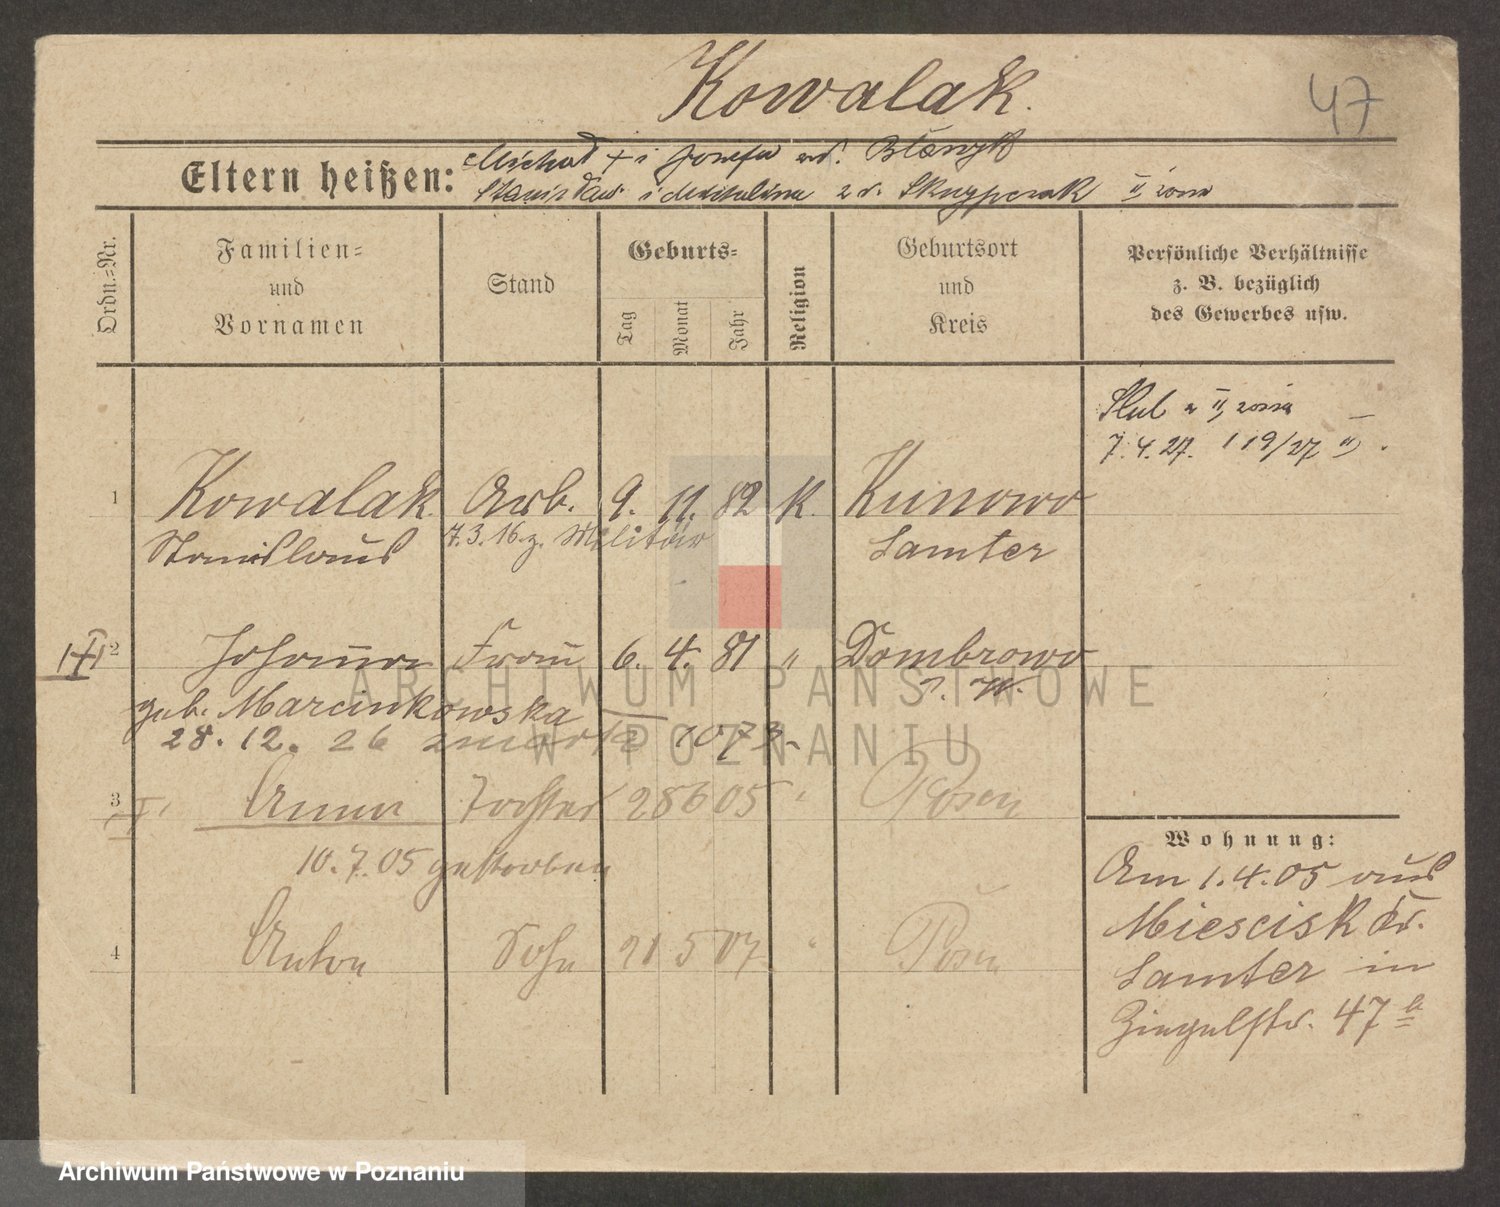 Kowalak.
47
Eltern heißen: Michał + i Józefa ur. Błaszyk
Stanisław i Magdalena z d. Skrzypczak II żona
Ordn.-Nr.
Familien-
und
Vornamen
Stand
Geburts-
Tag
Monat
Jahr
Religion
Geburtsort
und
Kreis
Persönliche Verhältnisse
z. B. bezüglich
des Gewerbes usw.
Ślub z II żoną
7.4.27. 119/27 II.
1 Kowalak Arb. 9. 11. 82 K. Kunowo
Stanislaus 7.3.16. z. Militär Samter
I+I 2 Johanna Frau 6. 4. 81 " Dombrowo
geb. Marcinkowska
28. 12. 26 zmarła 1073
3 Anna Tochter 28 6 05 " Posen
10.7.05 gestorben
4 Anton Sohn 21 5 07 " Posen
Wohnung:
Am 1.4.05 aus
Miescisk Kr.
Samter in
Ziegelstr. 47a
ARCHIWUM PAŃSTWOWE
W POZNANIU
Archiwum Państwowe w Poznaniu